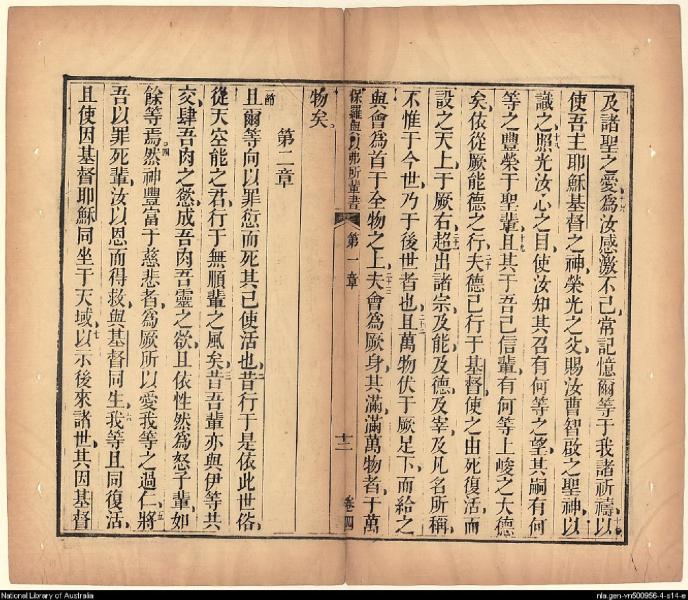 及諸聖之愛、爲汝感激不已、常記憶爾等于我諸祈禱、以
使吾主耶穌基督之神、榮光之父、賜汝曹智啟之聖神、以
識之、照光汝心之目、使汝知其召有何等之望、其嗣有何
等之豐榮于聖輩、且其于吾已信輩、有何等上峻之大德
矣、依從厥能德之行、夫德已行于基督、使之由死復活、而
設之天上、于厥右、超出諸宗及能及德及宰及凡名所稱、
不惟于今世、乃于後世者也、且萬物伏于厥足下、而給之
與會爲首于全物之上、夫會爲厥身、其滿、滿萬物者、于萬
物矣。
保羅與以弗所輩書 第一章 十二 卷四
第二章
且爾等向以罪愆而死、其已使活也、昔行于是依此世俗、
從天空能之君、行于無順輩之風矣、昔吾輩亦與伊等共
交、肆吾肉之慾、成吾肉吾靈之欲、且依性然爲怒子輩、如
餘等焉、然神豐富于慈悲者、爲厥所以愛我等之過仁、將
吾以罪死輩、汝以恩而得救、與基督同生、我等且同復活、
且使因基督耶穌同坐于天域、以示後來諸世、其因基督
National Library of Australia
nla.gen-vn500956-4-s14-e